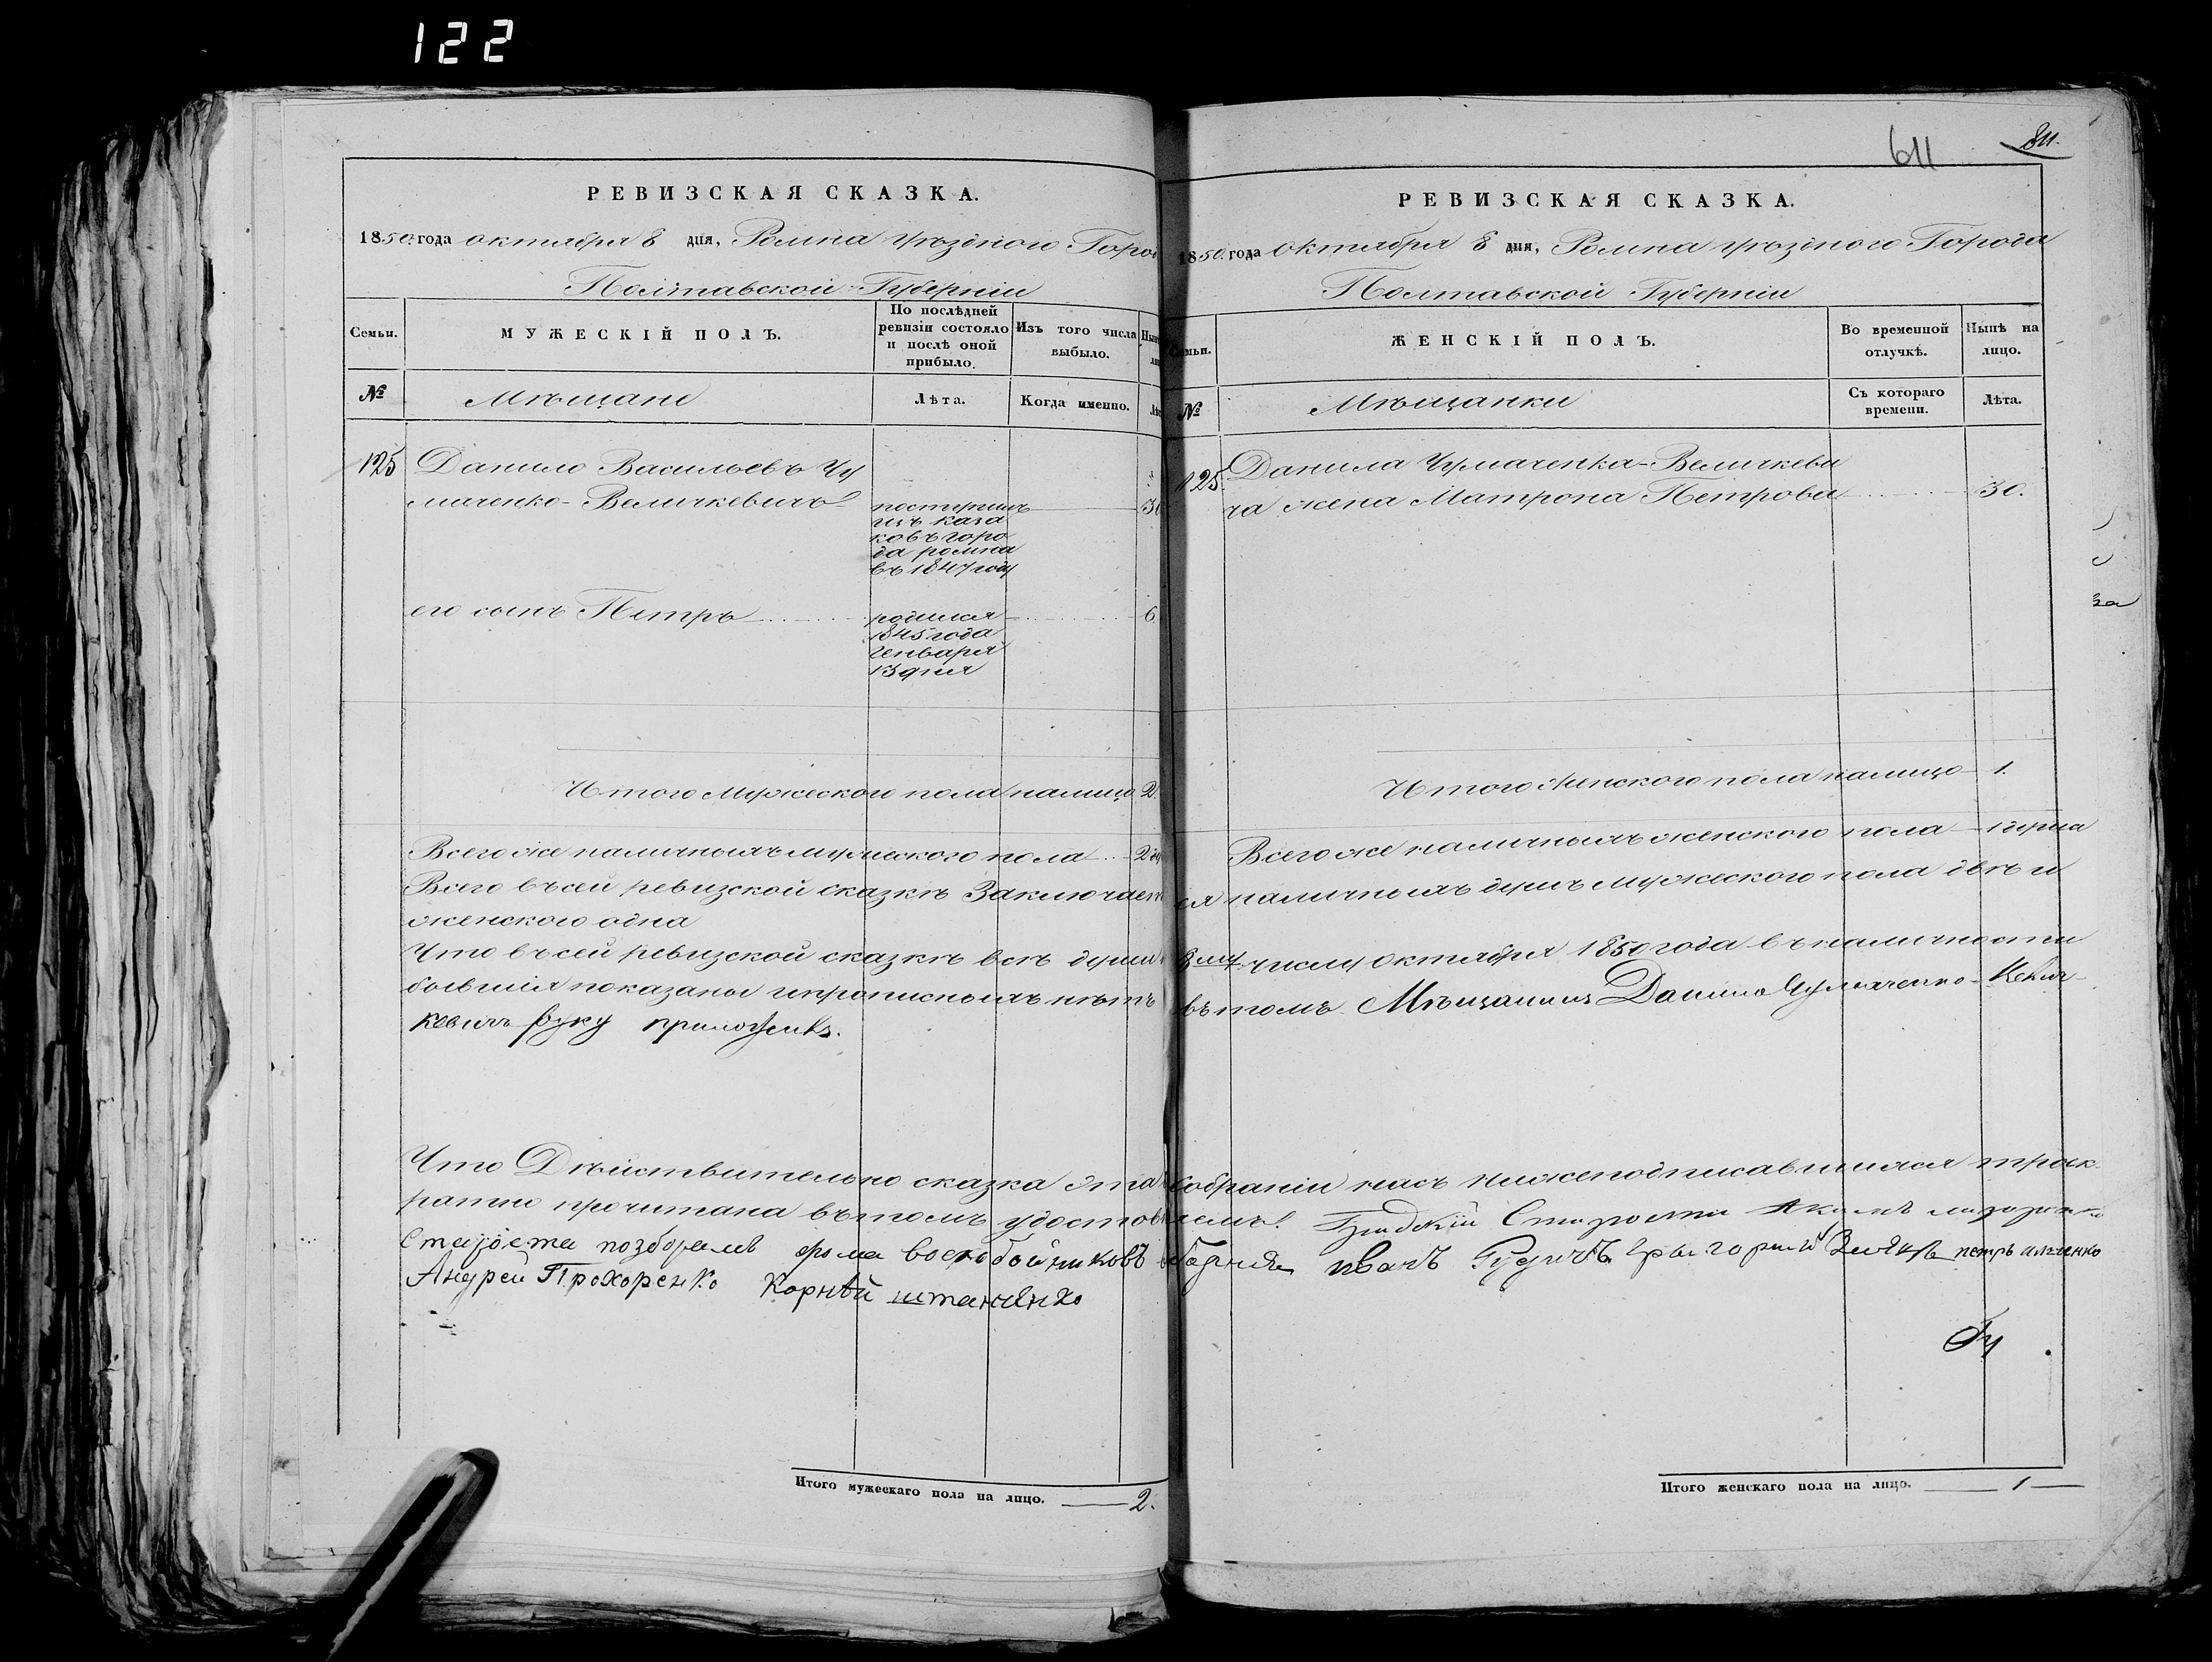 122
РЕВИЗСКАЯ СКАЗКА.
1850 года октября 8 дня, Ромна уѣзднаго Горо
Полтавской Губерніи
Семьи.
МУЖЕСКІЙ ПОЛЪ.
По послѣдней ревизіи состояло и послѣ оной прибыло.
Изъ того числа выбыло.
№
Мѣщане
Лѣта.
Когда именно.
125
Данило Васильевъ Чу
маченко-Величкевичъ
поступилъ
изъ каза
ковъ горо
да ромна
въ 1847 году
его сынъ Петръ
родился
1845 года
Генваря
13 дня
6
Итого Мужескаго пола налицо 2.
Всего же наличныхъ мужескаго пола 2
Всего въ сей ревизской сказкѣ Заключает
женского одна
Что въ сей ревизской сказкѣ всѣ души
бывшія показаны и прописныхъ нѣтъ
кевичъ руку приложилъ.
Что Дѣйствительно сказка эта
ратно прочитана въ томъ удостов
Староста фома воскобойниковъ
Андрей Прохоренко Корнѣй штанченко
Итого мужескаго пола на лицо. 2.
611
811.
РЕВИЗСКАЯ СКАЗКА.
1850. года Октября 8 дня, Ромна уѣзднаго Города
Полтавской Губерніи
ЖЕНСКІЙ ПОЛЪ.
Во временной отлучкѣ.
Нынѣ на лицо.
№
Мѣщанки
Съ котораго времени.
Лѣта.
125.
Данила Чумаченка-Величкеви
ча жена Матрона Петрова 30.
Итого женского пола налицо 1.
Всего же наличныхъ женского пола 1 душа
ся наличныхъ душъ мужеского пола двѣ и
8му числу Октября 1850 года въ наличности
въ томъ Мѣщанинъ Данило Чумаченко-Велич-
Собраніи насъ нижеподписавшихся троек
яемъ.
иванъ петръ
Итого женскаго пола на лицо. 1